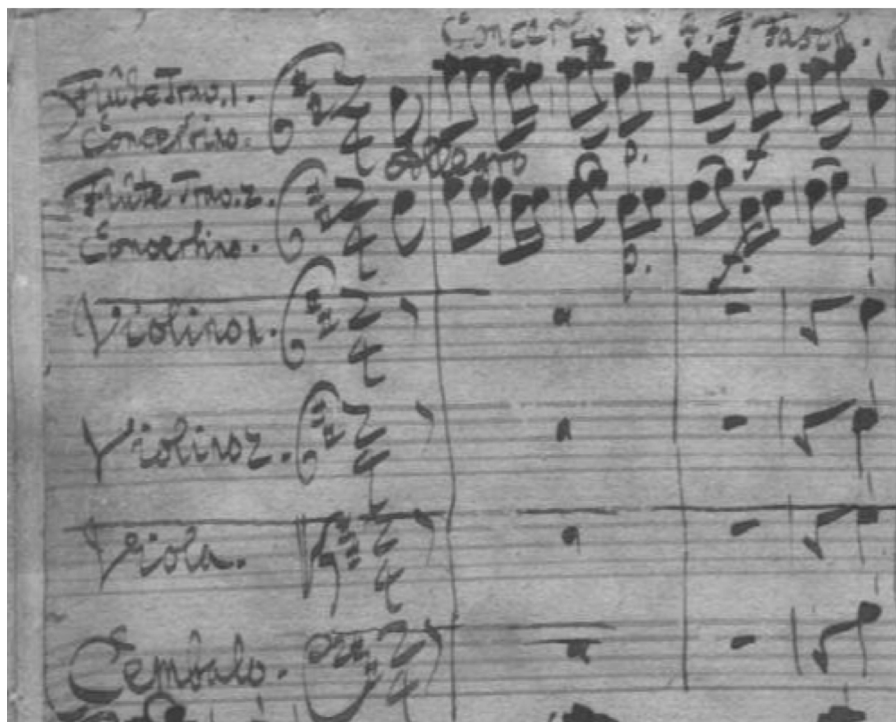 Concerto di G. F. Fasch.
Flûte Trav. 1.
Concertino.
Allegro
p.
f
Flûte Trav. 2.
Concertino.
p.
f.
Violino 1.
Violino 2.
Viola.
Cembalo.